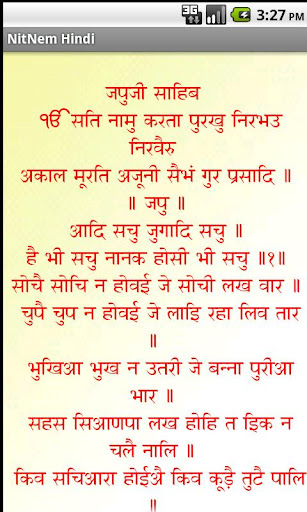 3G 3:27 PM
NitNem Hindi
जपुजी साहिब
ੴ सति नामु करता पुरखु निरभउ
निरवैरु
अकाल मूरति अजूनी सैभं गुर प्रसादि ॥
॥ जपु ॥
आदि सचु जुगादि सचु ॥
है भी सचु नानक होसी भी सचु ॥१॥
सोचै सोचि न होवई जे सोची लख वार ॥
चुपै चुप न होवई जे लाइि रहा लिव तार
॥
भुखिआ भुख न उतरी जे बन्ना पुरीआ
भार ॥
सहस सिआणपा लख होहि त इिक न
चलै नालि ॥
किव सचिआरा होईऔ किव कूड़ै तुटै पालि
॥